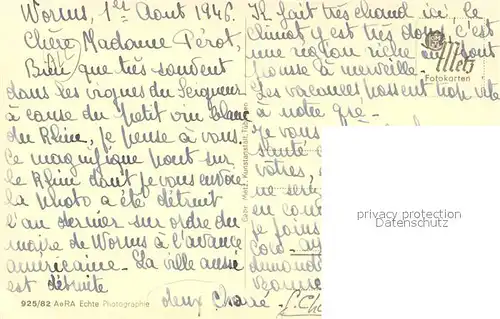 Worms, 1er Aout 1946.
Chère Madame Pérot,
Bien que très souvent
dans les vignes du Seigneur
à cause du petit vin blanc
du Rhin, je pense à vous.
Ce magnifique pont sur
le Rhin dont je vous envoie
la photo a été détruit
l'an dernier sur ordre du
maire de Worms à l'avance
américaine. La ville aussi
est détruite
925/82 AeRA Echte Photographie
Gebr. Metz, Kunstanstalt, Tübingen
Il fait très chaud ici, le
climat y est très doux, c'est
une région riche où tout
pousse à merveille.
Les vacances passent trop vite
à notre gré.
Je vous
santé
vôtres,
ne
en
je joins
demand
deux
Metz
Fotokarten
privacy protection
Datenschutz